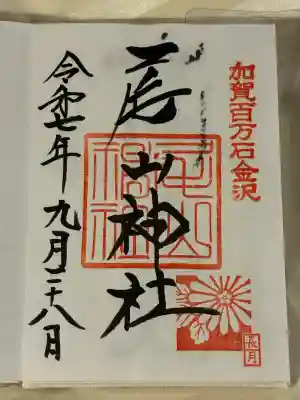 加賀百万石金沢
尾山神社
尾山神社
令和七年九月二十八日
長月